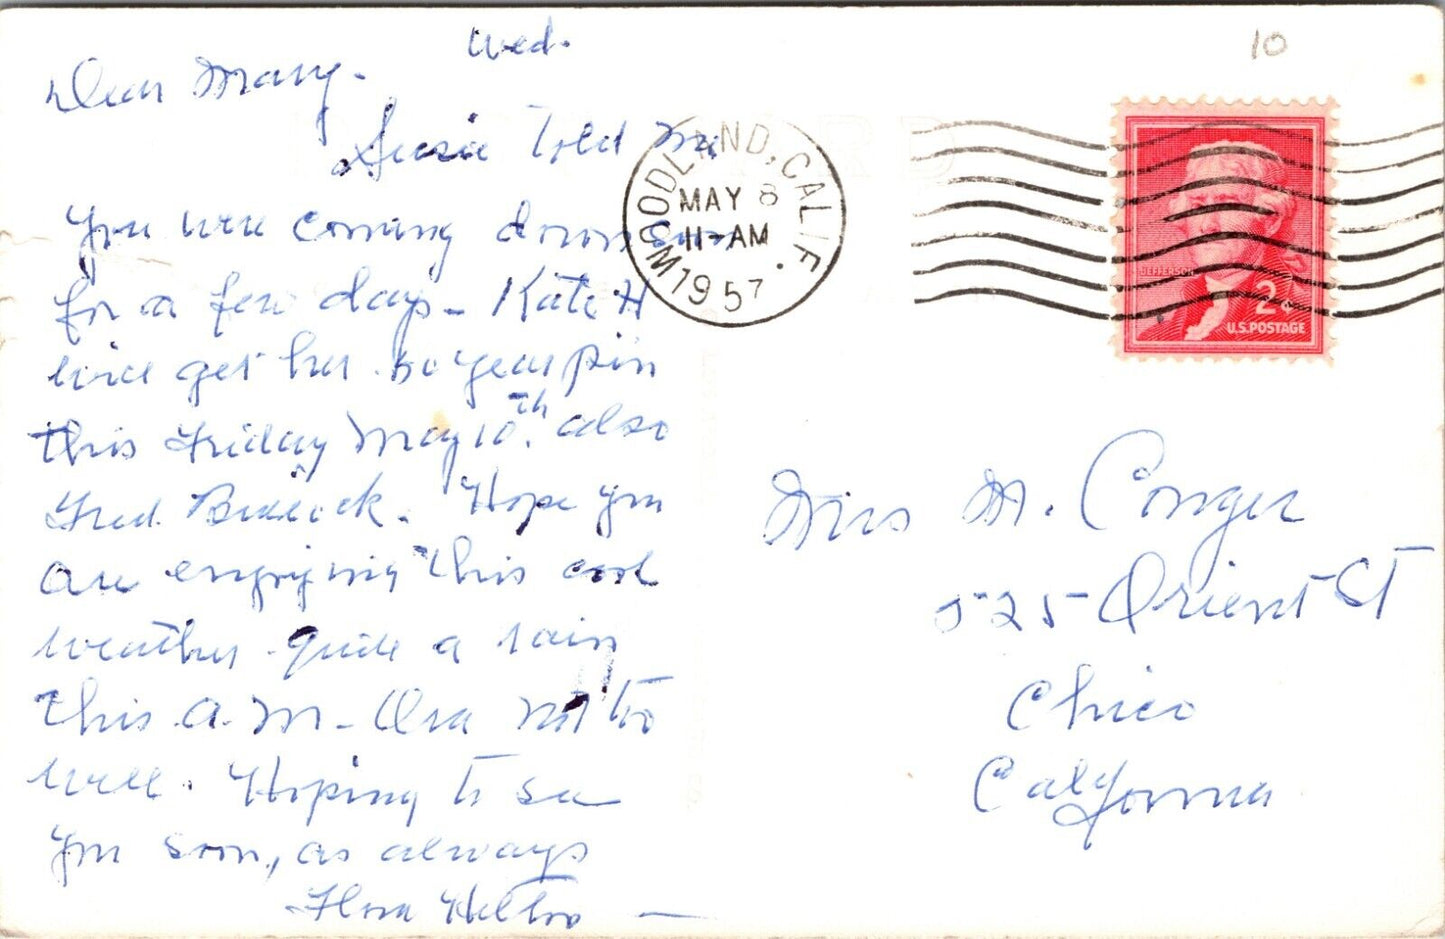 Wed.
Dear Mary.
Susie Told Me
you were coming down soon
for a few days - Kate H
will get her 50 year pin
this Friday May 10th. also
Fred Bullock. Hope you
are enjoying this cool
weather. quite a rain
this A.M - Ora not to
well. Hoping to see
you soon, as always
Flora
10
WOODLAND, CALIF.
MAY 8
11-AM
1957
JEFFERSON
2¢
U.S. POSTAGE
Mrs M. Conger
525 Orient St
Chico
California